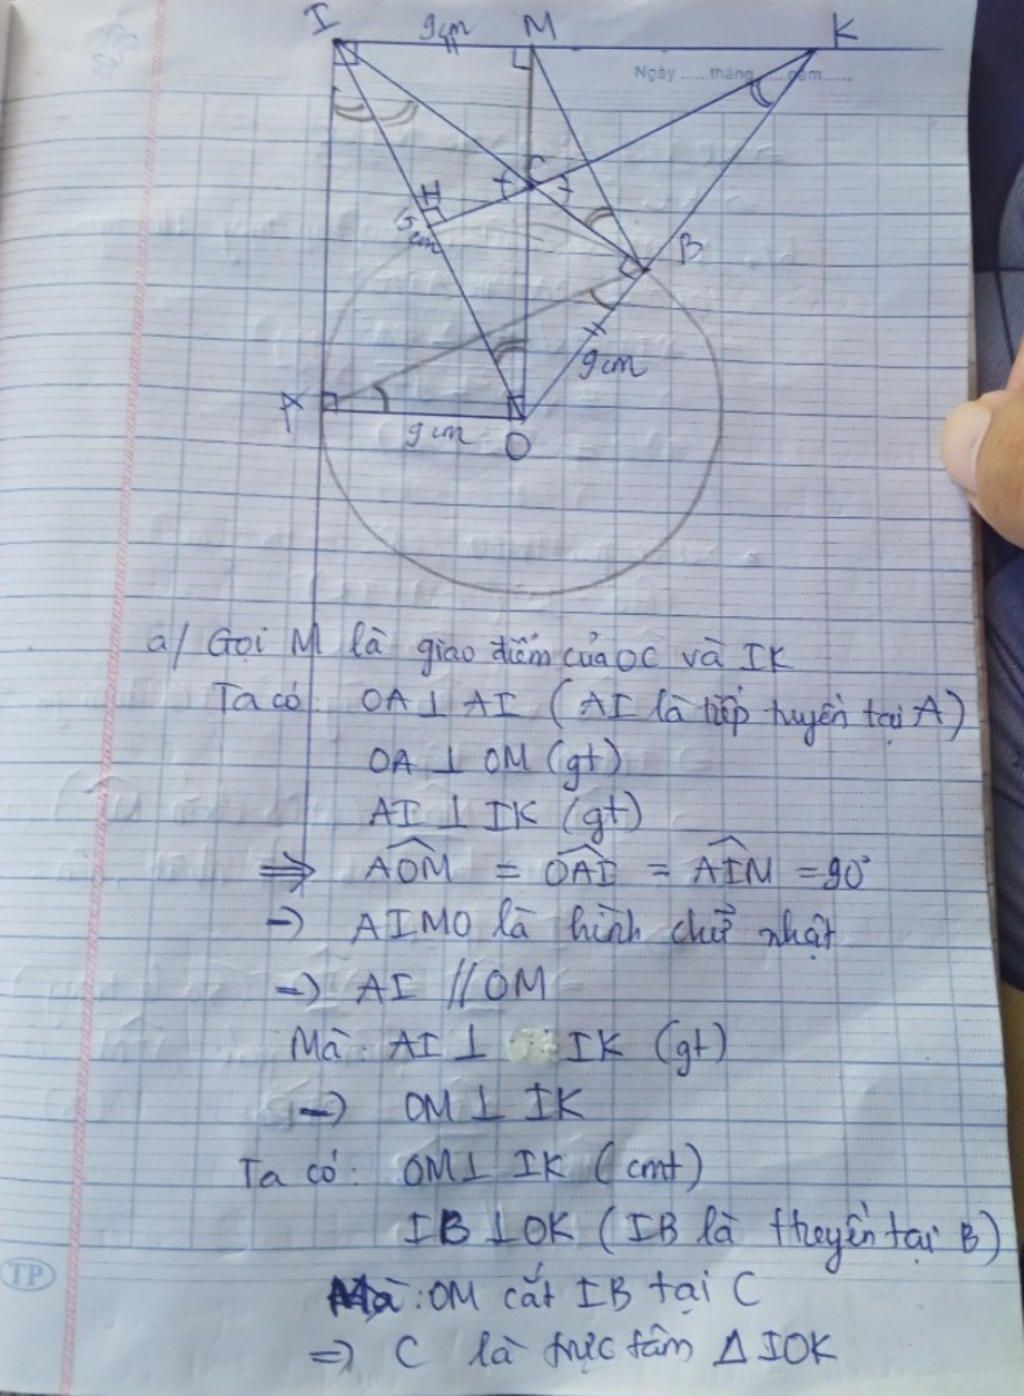 I 9cm M K
Ngày ......tháng ......năm......
C
H
15cm
B
9cm
A
9cm
O
a/ Gọi M là giao điểm của OC và IK
Ta có: OA ⊥ AI (AI là tiếp tuyến tại A)
OA ⊥ OM (gt)
AI ⊥ IK (gt)
=> AOM = OAI = AIM = 90°
-> AIMO là hình chữ nhật
-> AI // OM
Mà: AI ⊥ IK (gt)
-> OM ⊥ IK
Ta có: OM ⊥ IK (cmt)
IB ⊥ OK (IB là ttuyến tại B)
Mà: OM cắt IB tại C
TP
=> C là trực tâm Δ IOK